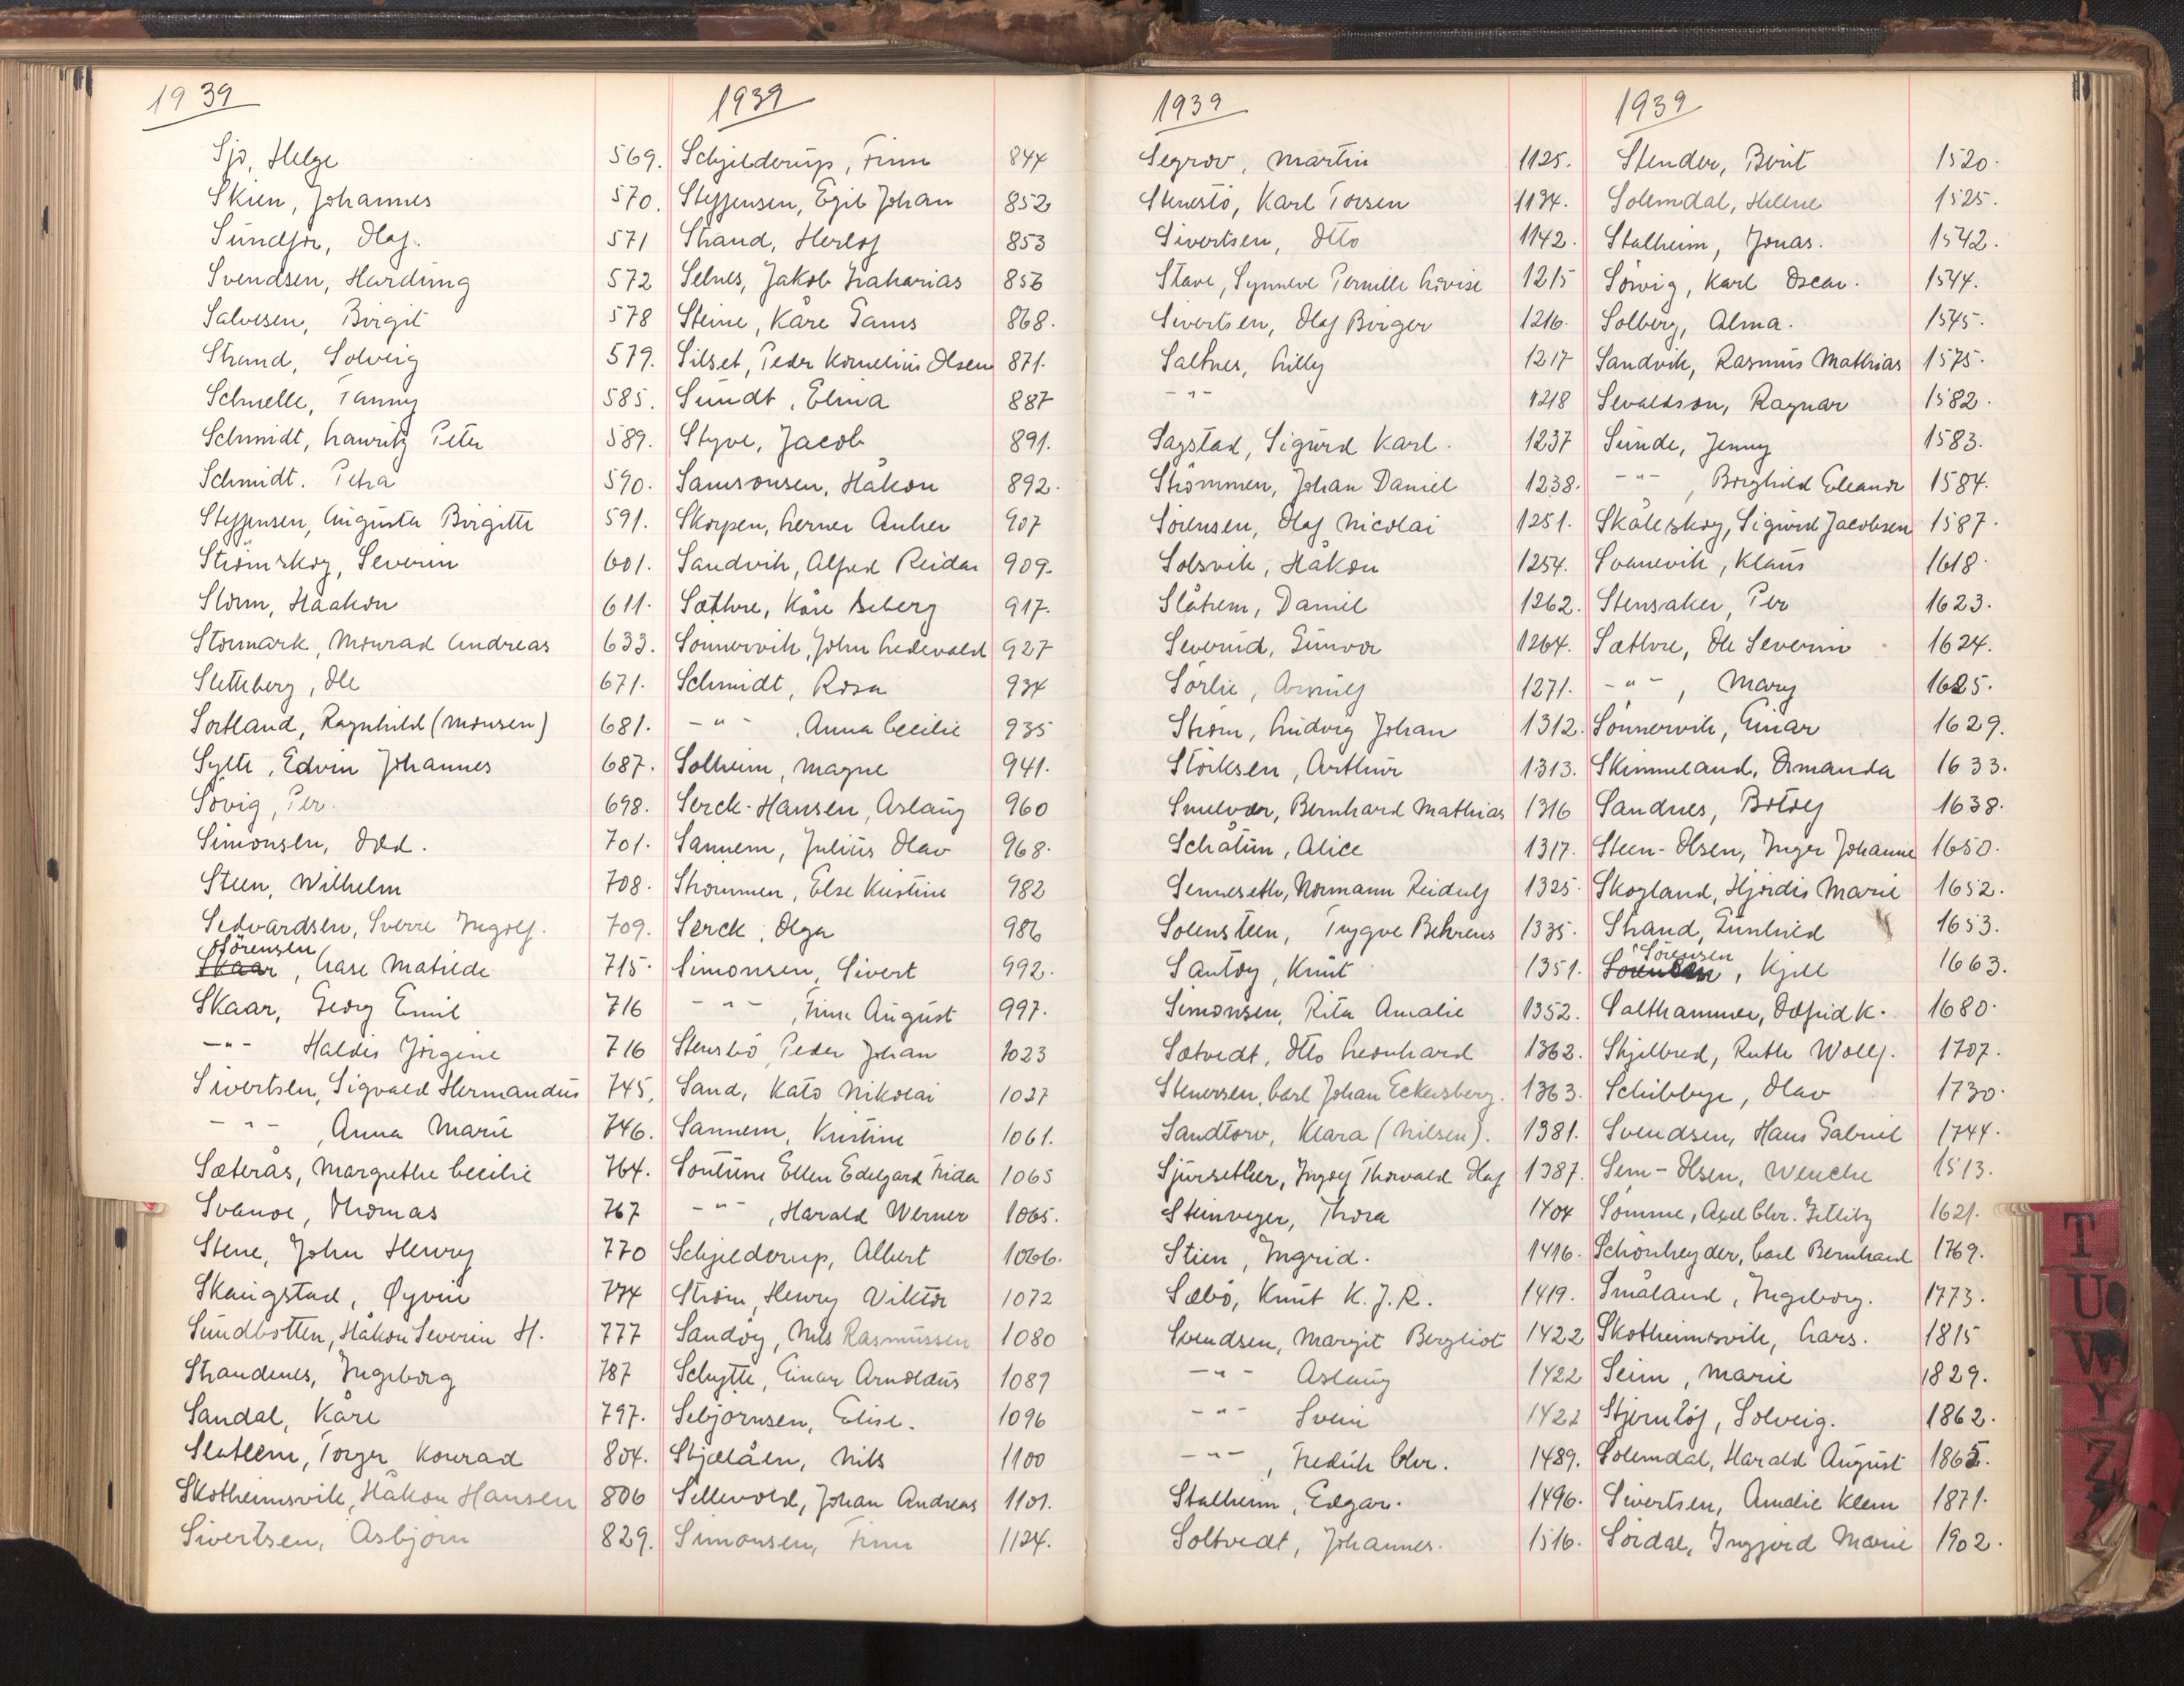 1939
Sjo, Helge 569.
Skien, Johannes 570.
Sundför, Olaf. 571
Svendsen, Harding 572
Salvesen, Birgit 578
Strand, Solveig 579.
Schnelle, Fanny 585.
Schmidt, Lauritz Peter 589.
Schmidt. Petra 590.
Steffensen, Augusta Birgitte 591.
Strömskog, Severin 601.
Storm, Haakon 611.
Stormark, Monrad Andreas 633.
Sletteberg, Ole 671.
Sortland, Ragnhild (Monsen) 681.
Sylte, Edvin Johannes 687.
Sövig, Per. 698.
Simonsen, Odd. 701.
Steen, Wilhelm 708.
Sedvardsen, Sverre Ingolf. 709.
Sörensen
Skaar, Aase Matilde 715.
Skaar, Georg Emil 716
-"- Haldis Jörgine 716
Sivertsen, Sigvald Hermandus 745.
-"-, Anna Marie 746.
Sæterås, Margrethe Cecilie 764.
Svanoe, Thomas 767
Stene, John Henry 770
Skaugstad, Øyvin 774
Sundbotten, Håkon Severin H. 777
Strandenes, Ingeborg 787
Sandal, Kåre 797.
Slatlem, Torger Konrad 804.
Skotheimsvik, Håkon Hansen 806
Sivertsen, Asbjörn 829.
1939
Schjelderup, Finn 844
Steffensen, Egil Johan 852
Strand, Herlof 853
Selnes, Jakob Zakarias 856
Steine, Kåre Gams 868.
Silset, Peder Kornelius Olsen 871.
Sundt, Elina 887
Styve, Jacob 891.
Samsonsen, Håkon 892.
Skorpen, Lerner Anker 907
Sandvik, Alfred Reidar 909.
Sæthre, Kåre Seberg 917.
Sönnervik, John Ledevald 927
Schmidt, Rosa 934
-"-, Anna Cecilie 935
Solheim, Magne 941.
Serck-Hansen, Aslaug 960
Sannem, Julius Olav 968.
Strömmen, Else Kristine 982
Serck, Olga 986
Simonsen, Sivert 992.
-"-, Finn August 997.
Stensbö, Peder Johan 1023
Sand, Kato Nikolai 1027
Sannem, Kristine 1061.
Sontum Ellen Edelgard Frida 1065
-"-, Harald Werner 1065.
Schjelderup, Albert 1066.
Ström, Henry Viktor 1072
Sandöy, Nils Rasmussen 1080
Schytte, Einar Arnoldus 1089
Sebjörnsen, Elise. 1096
Skjælåen, Nils 1100
Sellevold, Johan Andreas 1101.
Simonsen, Finn 1124.
1939
Segrov, Martin 1125.
Stenestö, Karl Torsen 1134.
Sivertsen, Otto 1142.
Stave, Synneve Pernille Lovise 1215
Sivertsen, Olaf Birger 1216.
Saltnes, Lilly 1217
-"- 1218
Sagstad, Sigurd Karl. 1237
Strömmen, Johan Daniel 1238.
Sörensen, Olaf Nicolai 1251.
Solsvik, Håkon 1254.
Slåtrem, Daniel 1262.
Severud, Gunvor 1264.
Sörlie, Arnulf 1271.
Ström, Ludvig Johan 1312.
Störksen, Arthur 1313.
Smelvær, Bernhard Mathias 1316
Schåtun, Alice 1317.
Senneseth, Normann Reidulf 1325.
Solensteen, Trygve Behrens 1335.
Santöy, Knut 1351.
Simonsen, Rita Amalie 1352.
Sætvedt, Otto Leonhard 1362.
Stenersen, Carl Johan Eckersberg. 1363.
Sandtorv, Klara (Nilsen). 1381.
Sjursether, Ingolf Thorvald Olaf 1387.
Steinveger, Thora 1404
Stien, Ingrid. 1416.
Sæbö, Knut K.J.R. 1419.
Svendsen, Margit Bergliot 1422
-"- Aslaug 1422
-"- Svein 1422
-"-, Fredrik Chr. 1489.
Stalheim, Edgar. 1496.
Soltvedt, Johannes. 1516.
1939
Stender, Berit 1520.
Solemdal, Helene 1525.
Stalheim, Jonas. 1542.
Sörvig, Karl Oscar. 1544.
Solberg, Alma. 1545.
Sandvik, Rasmus Mathias 1575.
Sevaldson, Ragnar 1582.
Sunde, Jenny 1583.
-"-, Borghild Eleanor 1584.
Skåleskog, Sigurd Jacobsen 1587.
Svanevik, Klaus 1618.
Stensaker, Per 1623.
Sæthre, Ole Severin 1624.
-"-, Mary 1625.
Sönnervik, Einar 1629.
Skimmeland, Amanda 1633.
Sandnes, Botolf 1638.
Steen-Olsen, Inger Johanne 1650.
Skogland, Hjördis Marie 1652.
Strand, Gunhild 1653.
Sörensen
Sorensen, Kjell 1663.
Salthammer, Odfrid K. 1680.
Skjelbred, Ruth Wolff. 1707.
Schibbye, Olav 1730.
Svendsen, Hans Gabriel 1744.
Sem-Olsen, Wenche 1513.
Sömme, Axel Chr. Zetlitz 1621.
Schönheyder, Carl Bernhard 1769.
Småland, Ingeborg. 1773.
Skotheimsvik, Lars. 1815
Seim, Marie 1829.
Stjernlöf, Solveig. 1862.
Solemdal, Harald August 1865.
Sivertsen, Amalie Klem 1871.
Sördal, Ingjerd Marie 1902.
T
U
W
Y
Z